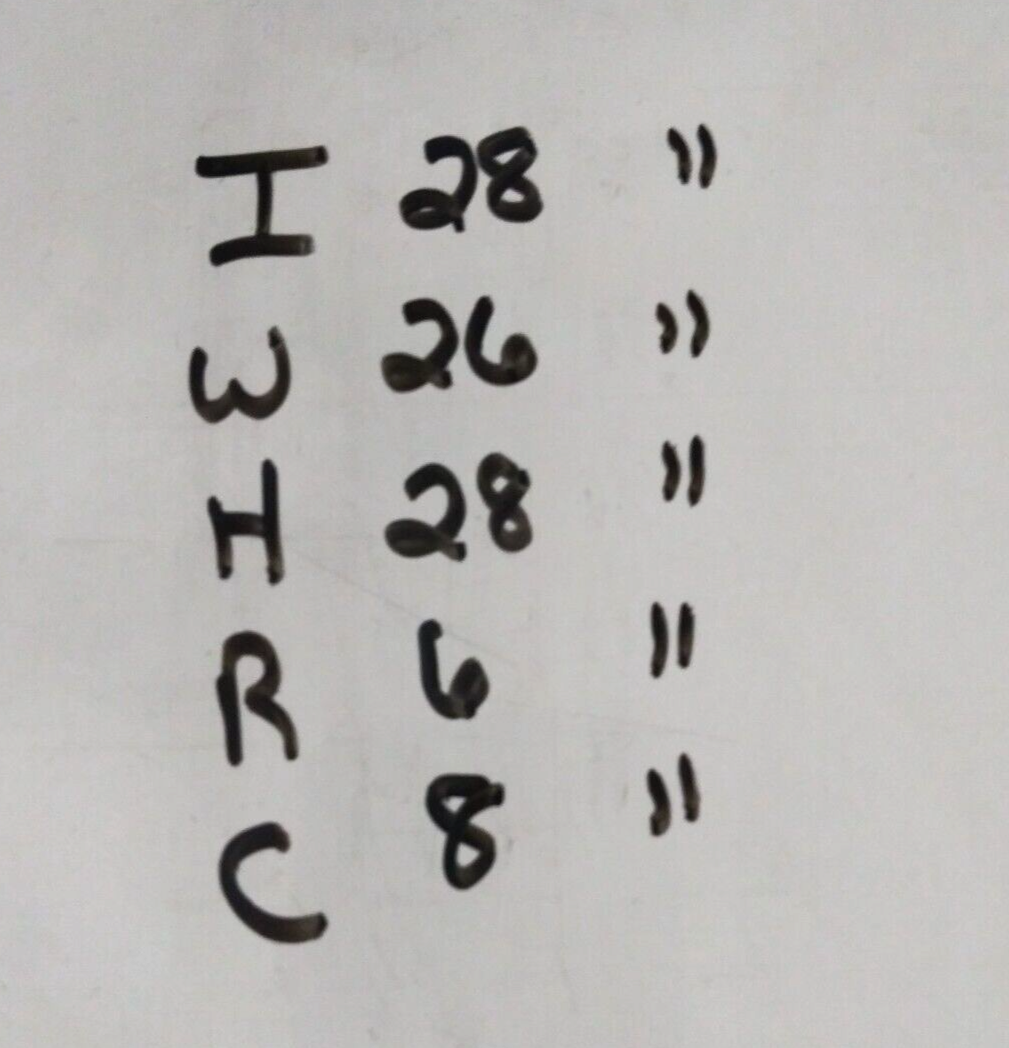 I 28 "
W 26 "
H 28 "
R 6 "
C 8 "